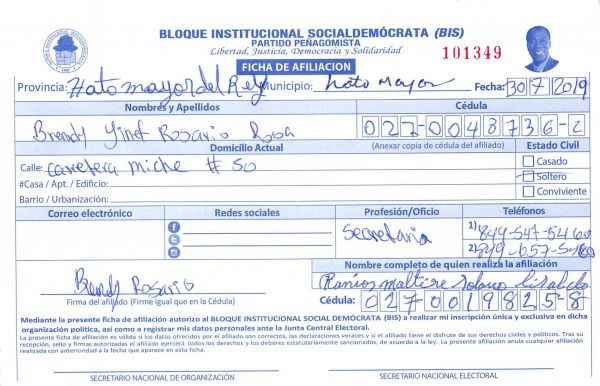 BLOQUE INSTITUCIONAL SOCIALDEMÓCRATA (BIS)
PARTIDO PEÑAGOMISTA
Libertad, Justicia, Democracia y Solidaridad
101349
FICHA DE AFILIACION
Provincia: Hato mayor del Rey Municipio: hato mayor Fecha: 30/7/2019
Nombres y Apellidos Cédula
Brendy Yinet Rosario Rosa 027-0048736-2
Domicilio Actual (Anexar copia de cédula del afiliado) Estado Civil
Calle: carretera miche # 50 Casado
#Casa / Apt. / Edificio: Soltero
Barrio / Urbanización: Conviviente
Correo electrónico Redes sociales Profesión/Oficio Teléfonos
Secretaria 1) 849-547-5460
2) 849-657-5460
Nombre completo de quien realiza la afiliación
Brendy Rosario Ramós
Firma del afiliado (Firme igual que en la Cédula) Cédula: 0270019825-8
Mediante la presente ficha de afiliación autorizo al BLOQUE INSTITUCIONAL SOCIAL DEMÓCRATA (BIS) a realizar mi inscripción única y exclusiva en dicha
organización política, así como a registrar mis datos personales ante la Junta Central Electoral.
La presente ficha de afiliación es válida si los datos ofrecidos por el afiliado son correctos, las declaraciones veraces y si el afiliado tiene el disfrute de sus derechos civiles y políticos. Tras su
recepción, sello y firmas autorizadas el afiliado ejercerá todos los derechos y los deberes estatutariamente sancionados, de acuerdo a la ley. La presente afiliación anula cualquier afiliación
realizada con anterioridad a la fecha que aparece en esta ficha.
SECRETARIO NACIONAL DE ORGANIZACIÓN SECRETARIO NACIONAL ELECTORAL